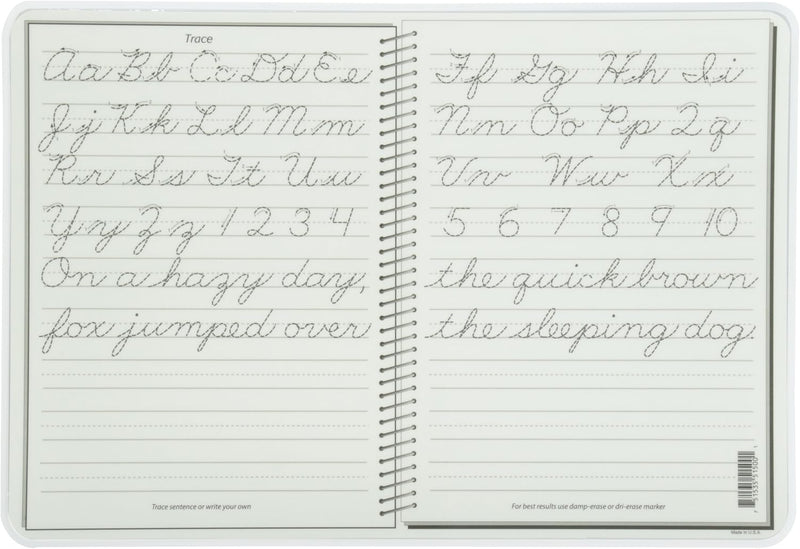 Trace
Aa Bb Cc Dd Ee Ff Gg Hh Ii
Jj Kk Ll Mm Nn Oo Pp Qq
Rr Ss Tt Uu Vv Ww Xx
Yy Zz 1 2 3 4 5 6 7 8 9 10
On a hazy day, the quick brown
fox jumped over the sleeping dog.
Trace sentence or write your own
For best results use damp-erase or dri-erase marker
7 51535 51500 1
Made in U.S.A.